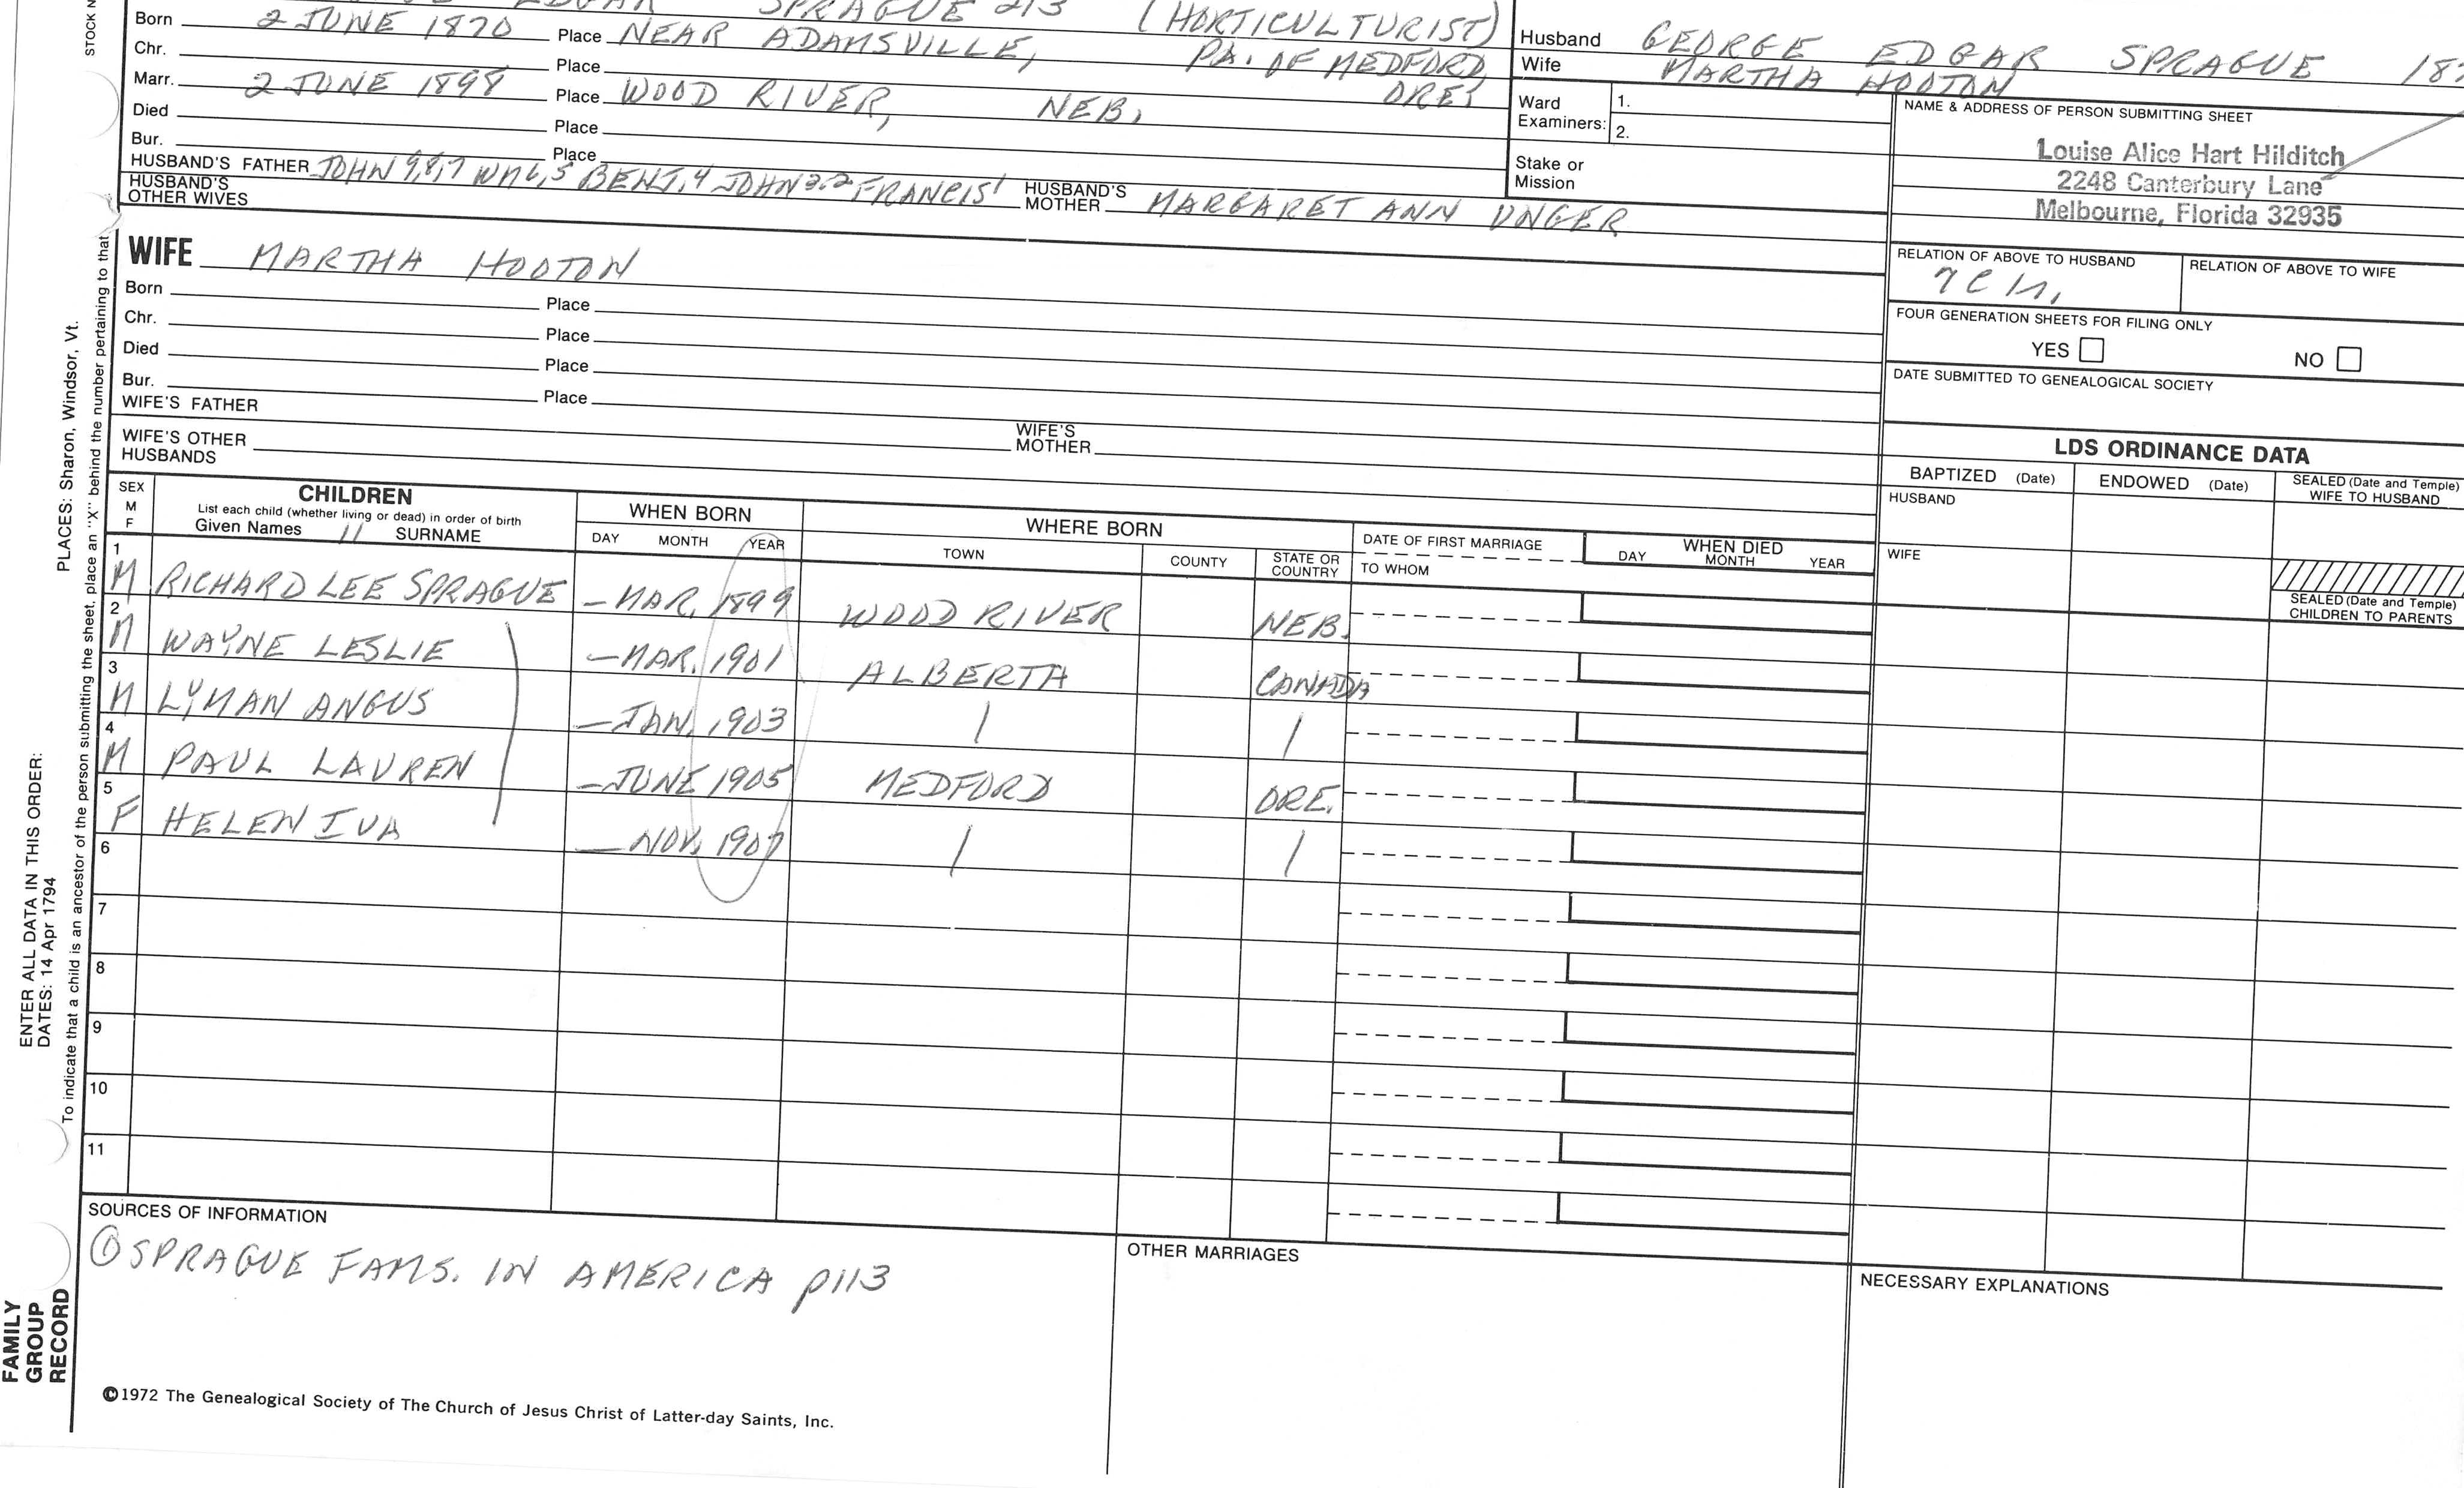 EDGAR SPRAGUE 213 (HORTICULTURIST)
Born 2 JUNE 1870 Place NEAR ADAMSVILLE, PA. OF MEDFORD
Chr. Place ORE.
Marr. 2 JUNE 1898 Place WOOD RIVER, NEB.
Died Place
Bur. Place
HUSBAND'S FATHER JOHN 9,8,7 WM 6,5 BENJ.4 JOHN 3,2 FRANCIS 1 HUSBAND'S MOTHER MARGARET ANN UNGER
HUSBAND'S OTHER WIVES
Husband GEORGE EDGAR SPRAGUE
Wife MARTHA HOOTON
Ward Examiners: 1.
2.
Stake or Mission
NAME & ADDRESS OF PERSON SUBMITTING SHEET
Louise Alice Hart Hilditch
2248 Canterbury Lane
Melbourne, Florida 32935
WIFE MARTHA HOOTON
Born Place
Chr. Place
Died Place
Bur. Place
WIFE'S FATHER WIFE'S MOTHER
WIFE'S OTHER HUSBANDS
RELATION OF ABOVE TO HUSBAND RELATION OF ABOVE TO WIFE
FOUR GENERATION SHEETS FOR FILING ONLY
YES NO
DATE SUBMITTED TO GENEALOGICAL SOCIETY
LDS ORDINANCE DATA
BAPTIZED (Date) ENDOWED (Date) SEALED (Date and Temple) WIFE TO HUSBAND
HUSBAND
WIFE
SEALED (Date and Temple) CHILDREN TO PARENTS
SEX M F
CHILDREN
List each child (whether living or dead) in order of birth
Given Names 11 SURNAME
WHEN BORN
DAY MONTH YEAR
WHERE BORN
TOWN COUNTY STATE OR COUNTRY
DATE OF FIRST MARRIAGE
TO WHOM
WHEN DIED
DAY MONTH YEAR
1 M RICHARD LEE SPRAGUE – MAR. 1899 WOOD RIVER NEB.
2 M WAYNE LESLIE – MAR. 1901 ALBERTA CANADA
3 M LYMAN ANGUS – JAN. 1903 | |
4 M PAUL LAUREN – JUNE 1905 MEDFORD ORE.
5 F HELEN IVA – NOV. 1907 | |
6
7
8
9
10
11
SOURCES OF INFORMATION
① SPRAGUE FAMS. IN AMERICA p113
OTHER MARRIAGES
NECESSARY EXPLANATIONS
©1972 The Genealogical Society of The Church of Jesus Christ of Latter-day Saints, Inc.
STOCK N
PLACES: Sharon, Windsor, Vt.
ENTER ALL DATA IN THIS ORDER:
DATES: 14 Apr 1794
To indicate that a child is an ancestor of the person submitting the sheet, place an "X" behind the number pertaining to that
FAMILY GROUP RECORD